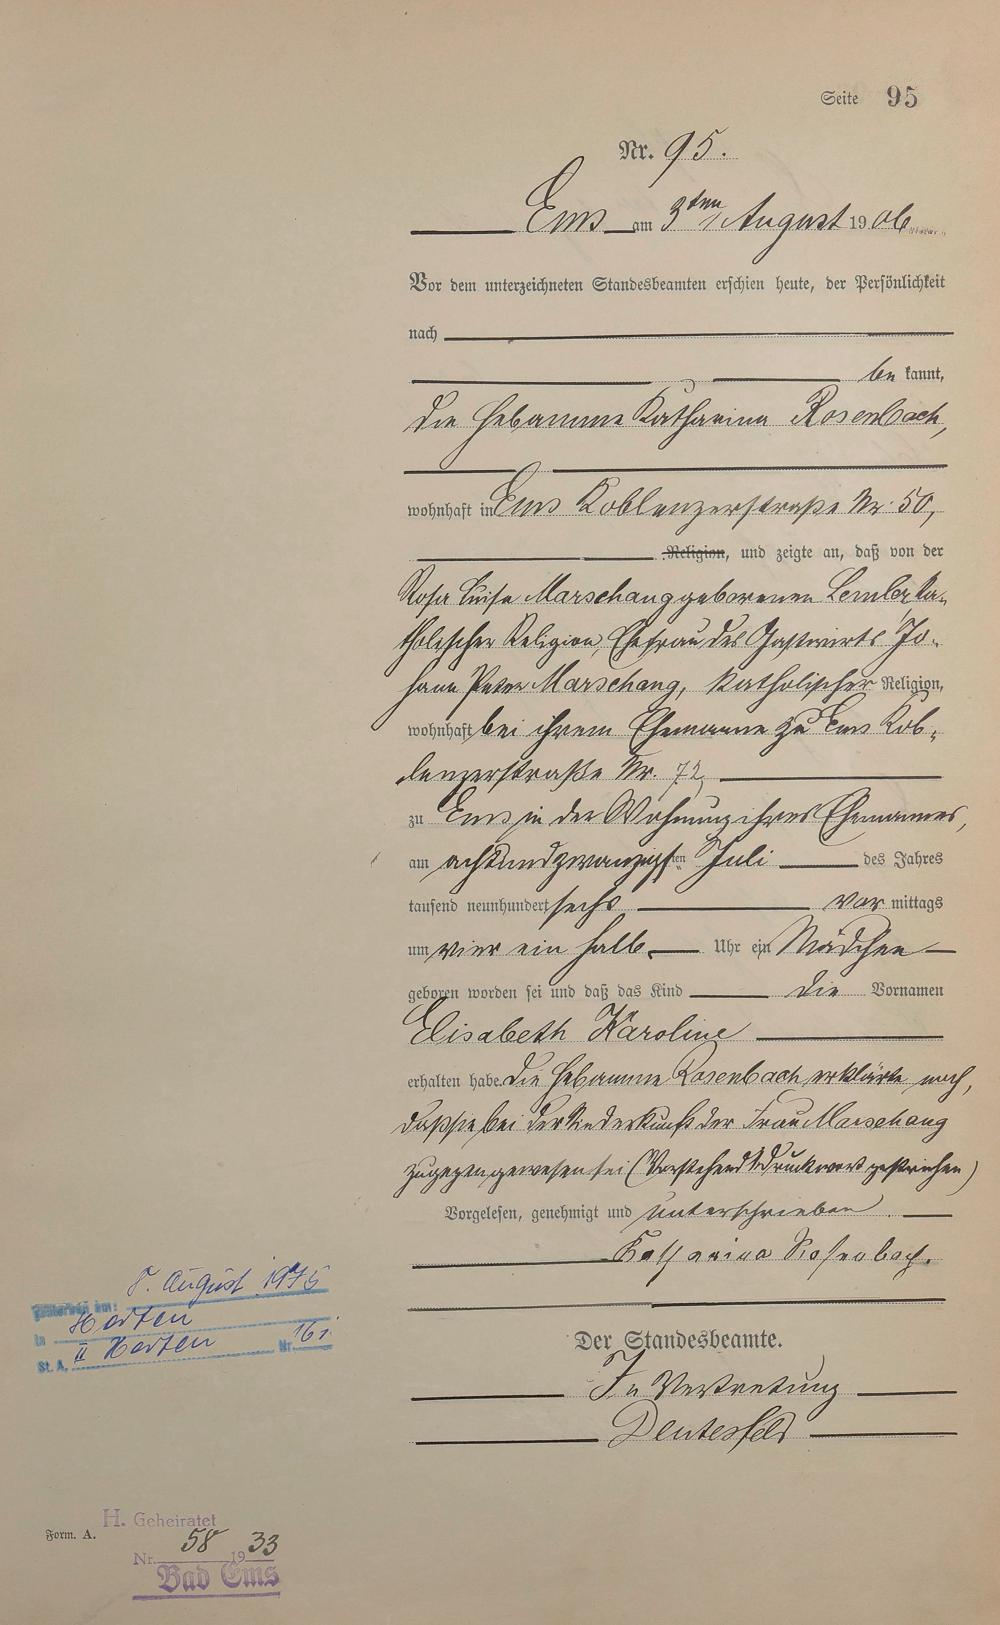 Seite 95
Nr. 95.
Ems am 3ten August 1906
Vor dem unterzeichneten Standesbeamten erschien heute, der Persönlichkeit
nach
be kannt,
die Hebamme Katharina Rosenbach,
wohnhaft in Ems Koblenzerstraße Nr. 50,
Religion, und zeigte an, daß von der
Rosa Luise Marschang geborenen Lemler, ka-
tholischer Religion, Ehefrau des Gastwirts Jo-
hann Peter Marschang, katholischer Religion,
wohnhaft bei ihrem Ehemanne zu Ems Kob-
lenzerstraße Nr. 72,
zu Ems in der Wohnung ihres Ehemannes,
am achtundzwanzigsten Juli des Jahres
tausend neunhundert sechs vor mittags
um vier ein halb Uhr ein Mädchen
geboren worden sei und daß das Kind die Vornamen
Elisabeth Karoline
erhalten habe. Die Hebamme Rosenbach erklärte noch,
daß sie bei der Niederkunft der Frau Marschang
zugegen gewesen sei (Vorstehend 1 Druckwort gestrichen)
Vorgelesen, genehmigt und unterschrieben
Katharina Rosenbach.
Der Standesbeamte.
In Vertretung
Gestorben am: 8. August 1975
in Herten
St. A. II Herten Nr. 161
H. Geheiratet
Form. A.
Nr. 58 1933
Bad Ems